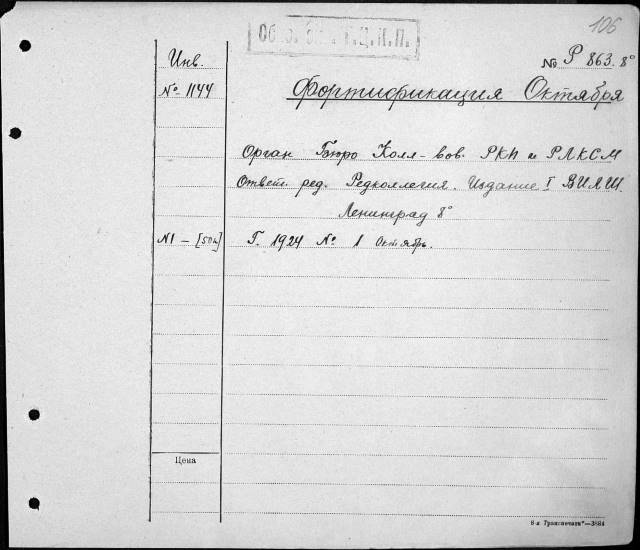 106
Инв.
№ P 863. 8°
№ 1144
Фортификация Октября
Орган Бюро Колл-вов. РКП и РЛКСМ
Ответ. ред. Редколлегия. Издание I ВИЛШ.
Ленинград 8°
N1 – [50к]
Г. 1924 № 1 Октябрь.
Цена
8-я Транспечати"—3884